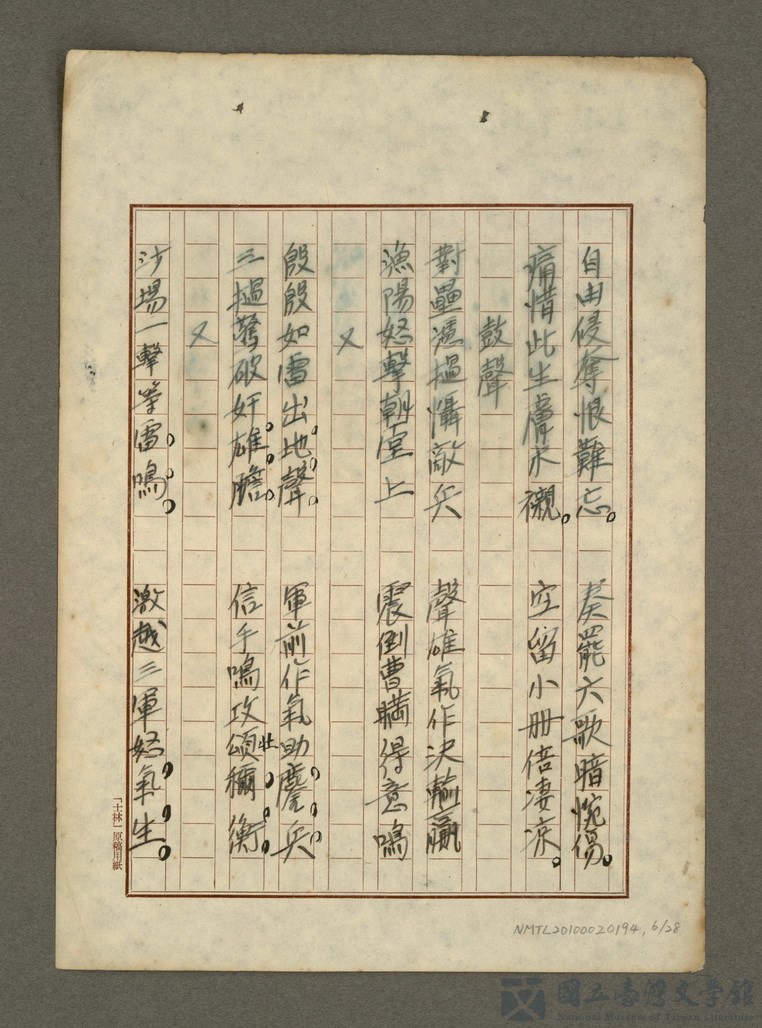 自由侵奪恨難忘。　奏罷六歌暗惋傷。
痛惜此生膚不襯。　空留小冊倍凄涼。
鼓聲
對壘憑撾懾敵兵　聲雄氣作決輸贏
漁陽怒擊朝堂上　震倒曹瞞得意鳴
又
殷殷如雷出地聲。　軍前作氣助鏖兵。
三撾驚破奸雄膽。　信手鳴攻頌禰衡。
壯
又
沙場一擊等雷鳴。　激越三軍怒氣生。
「士林」原稿用紙
NMTL20100020194, 6/28
國立臺灣文學館
National Museum of Taiwan Literature